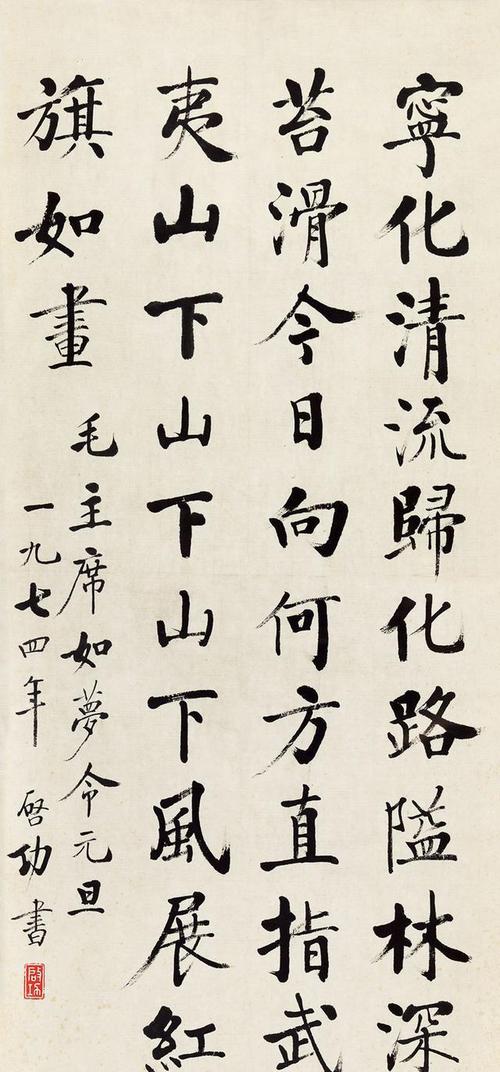 寧化清流歸化路隘林深
苔滑今日向何方直指武
夷山下山下山下風展紅
旗如畫
毛主席如夢令元旦
一九七四年 啓功書
啟功